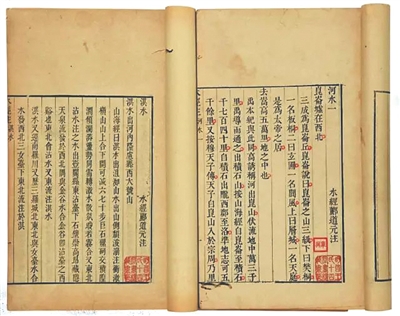 河水一
水經酈道元注
崑崙墟在西北
三成爲崑崙丘崑崙說曰崑崙之山三級下曰樊桐
一名板桐二曰玄圃一名閬風上曰層城一名天庭
是爲太帝之居
去嵩高五萬里地之中也
禹本紀與此同高誘稱河出崑山伏流地中萬三千
里禹導而通之出積石山按山海經自崑崙至積石
千七百四十里自積石出隴西郡至洛準地志可五
千餘里又按穆天子傳天子自崑山入于宗周乃里
淇水
水經酈道元注
淇水出河內隆慮縣西大號山
山海經曰淇水出沮洳山水出山側頹波漰注衝激
橫山山上合下開可減六七十步巨石磥砢交積隍
澗傾瀾漭盪勢同雷轉激水散氛曖若霧合又東北
沾水注之水出壺關縣東沾臺下石壁崇高昂藏隱
天泉流發於西北隅與金谷水合金谷即沾臺之西
溪也東北會沾水又東流注淇水
淇水又逕南羅川又歷三羅城北東北與女臺水合
水發西北三女臺下東北流注於淇